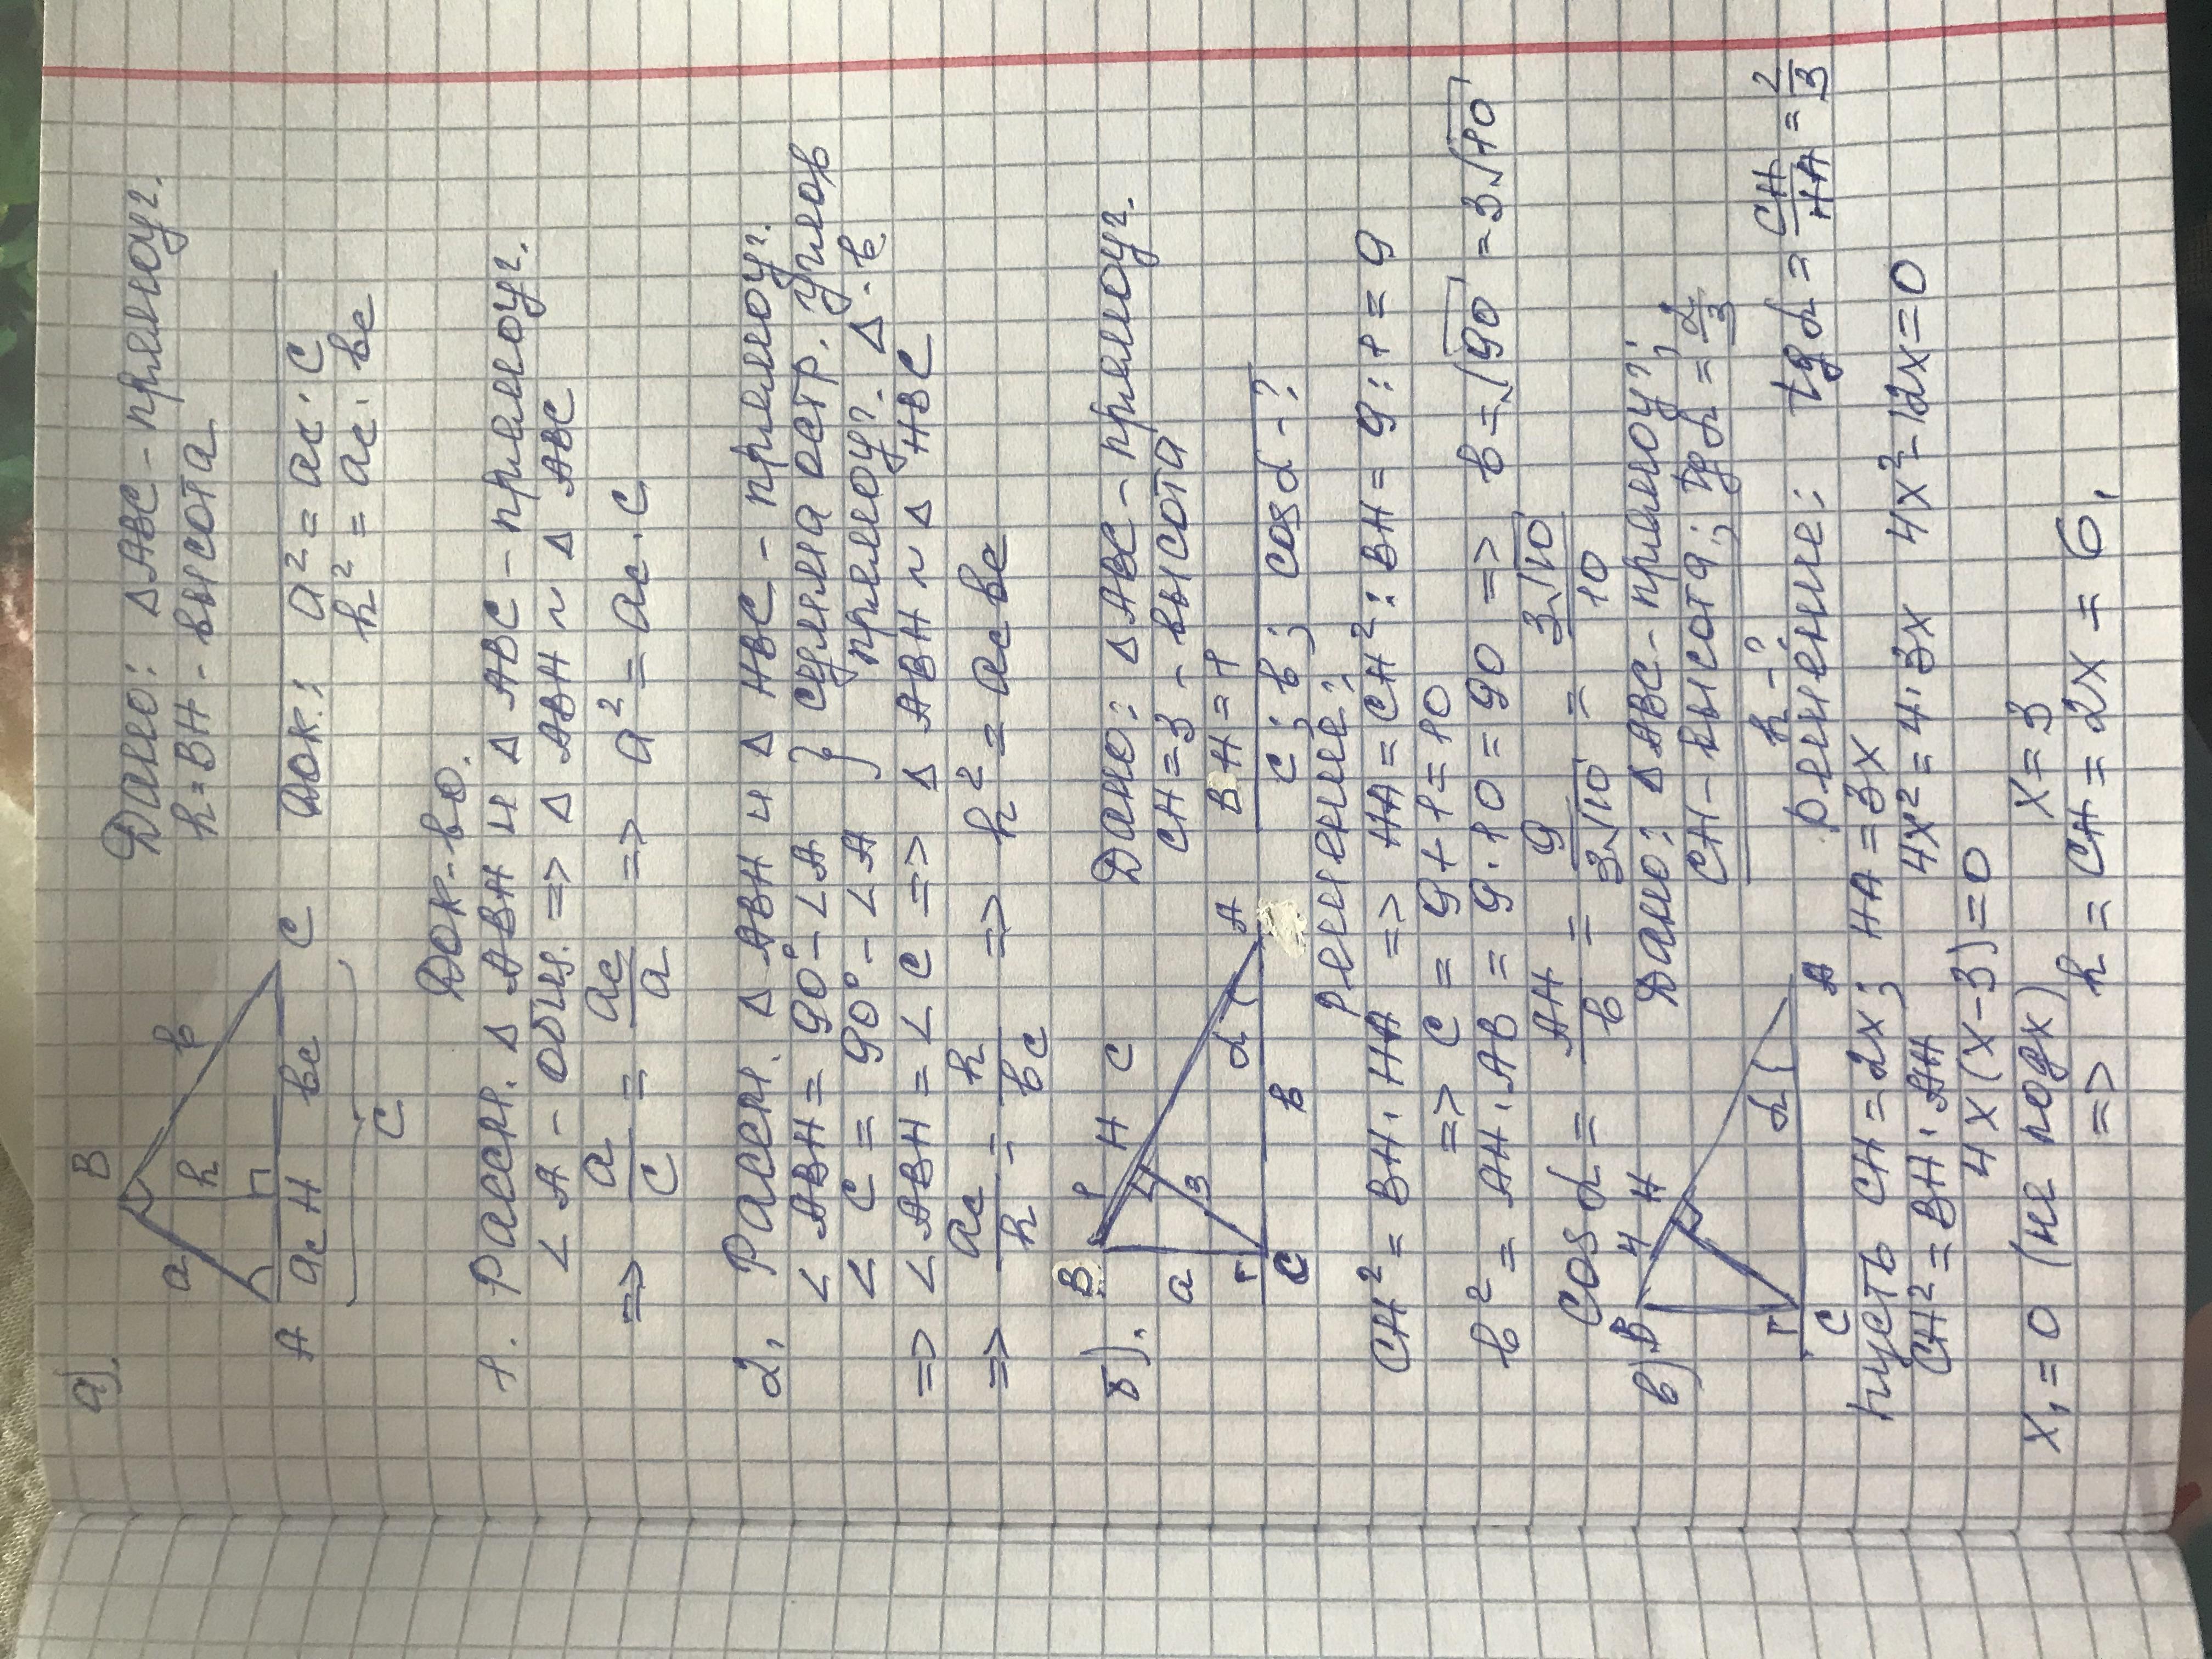 а).
B
a
h
b
A
ac
H
bc
C
c
Дано: Δ ABC - прямоуг.
h = BH - высота
Док.: a² = ac · c
h² = ac · bc
Док-во.
1. Рассм. Δ ABH и Δ ABC - прямоуг.
∠ A - общ. => Δ ABH ~ Δ ABC
=> a/c = ac/a => a² = ac · c
2. Рассм. Δ ABH и Δ HBC - прямоуг.
∠ ABH = 90° - ∠ A } сумма остр. углов
∠ C = 90° - ∠ A } прямоуг. Δ-в
=> ∠ ABH = ∠ C => Δ ABH ~ Δ HBC
=> ac/h = h/bc => h² = ac bc
б).
B
1
H
c
a
3
α
A
C
b
Дано: Δ ABC - прямоуг.
CH = 3 - высота
BH = 1
c; b; cos α - ?
Решение:
CH² = BH · HA => HA = CH² : BH = 9 : 1 = 9
=> c = 9 + 1 = 10
b² = AH · AB = 9 · 10 = 90 => b = √90 = 3√10
cos α = AH/b = 9/3√10 = 3√10/10
в).
B
4
H
α
C
A
Дано: Δ ABC - прямоуг;
CH - высота; tg α = 2/3
h - ?
Решение: tg α = CH/HA = 2/3
Пусть CH = 2x; HA = 3x
CH² = BH · AH 4x² = 4 · 3x 4x² - 12x = 0
4x (x - 3) = 0
x₁ = 0 (не подх) x = 3
=> h = CH = 2x = 6,